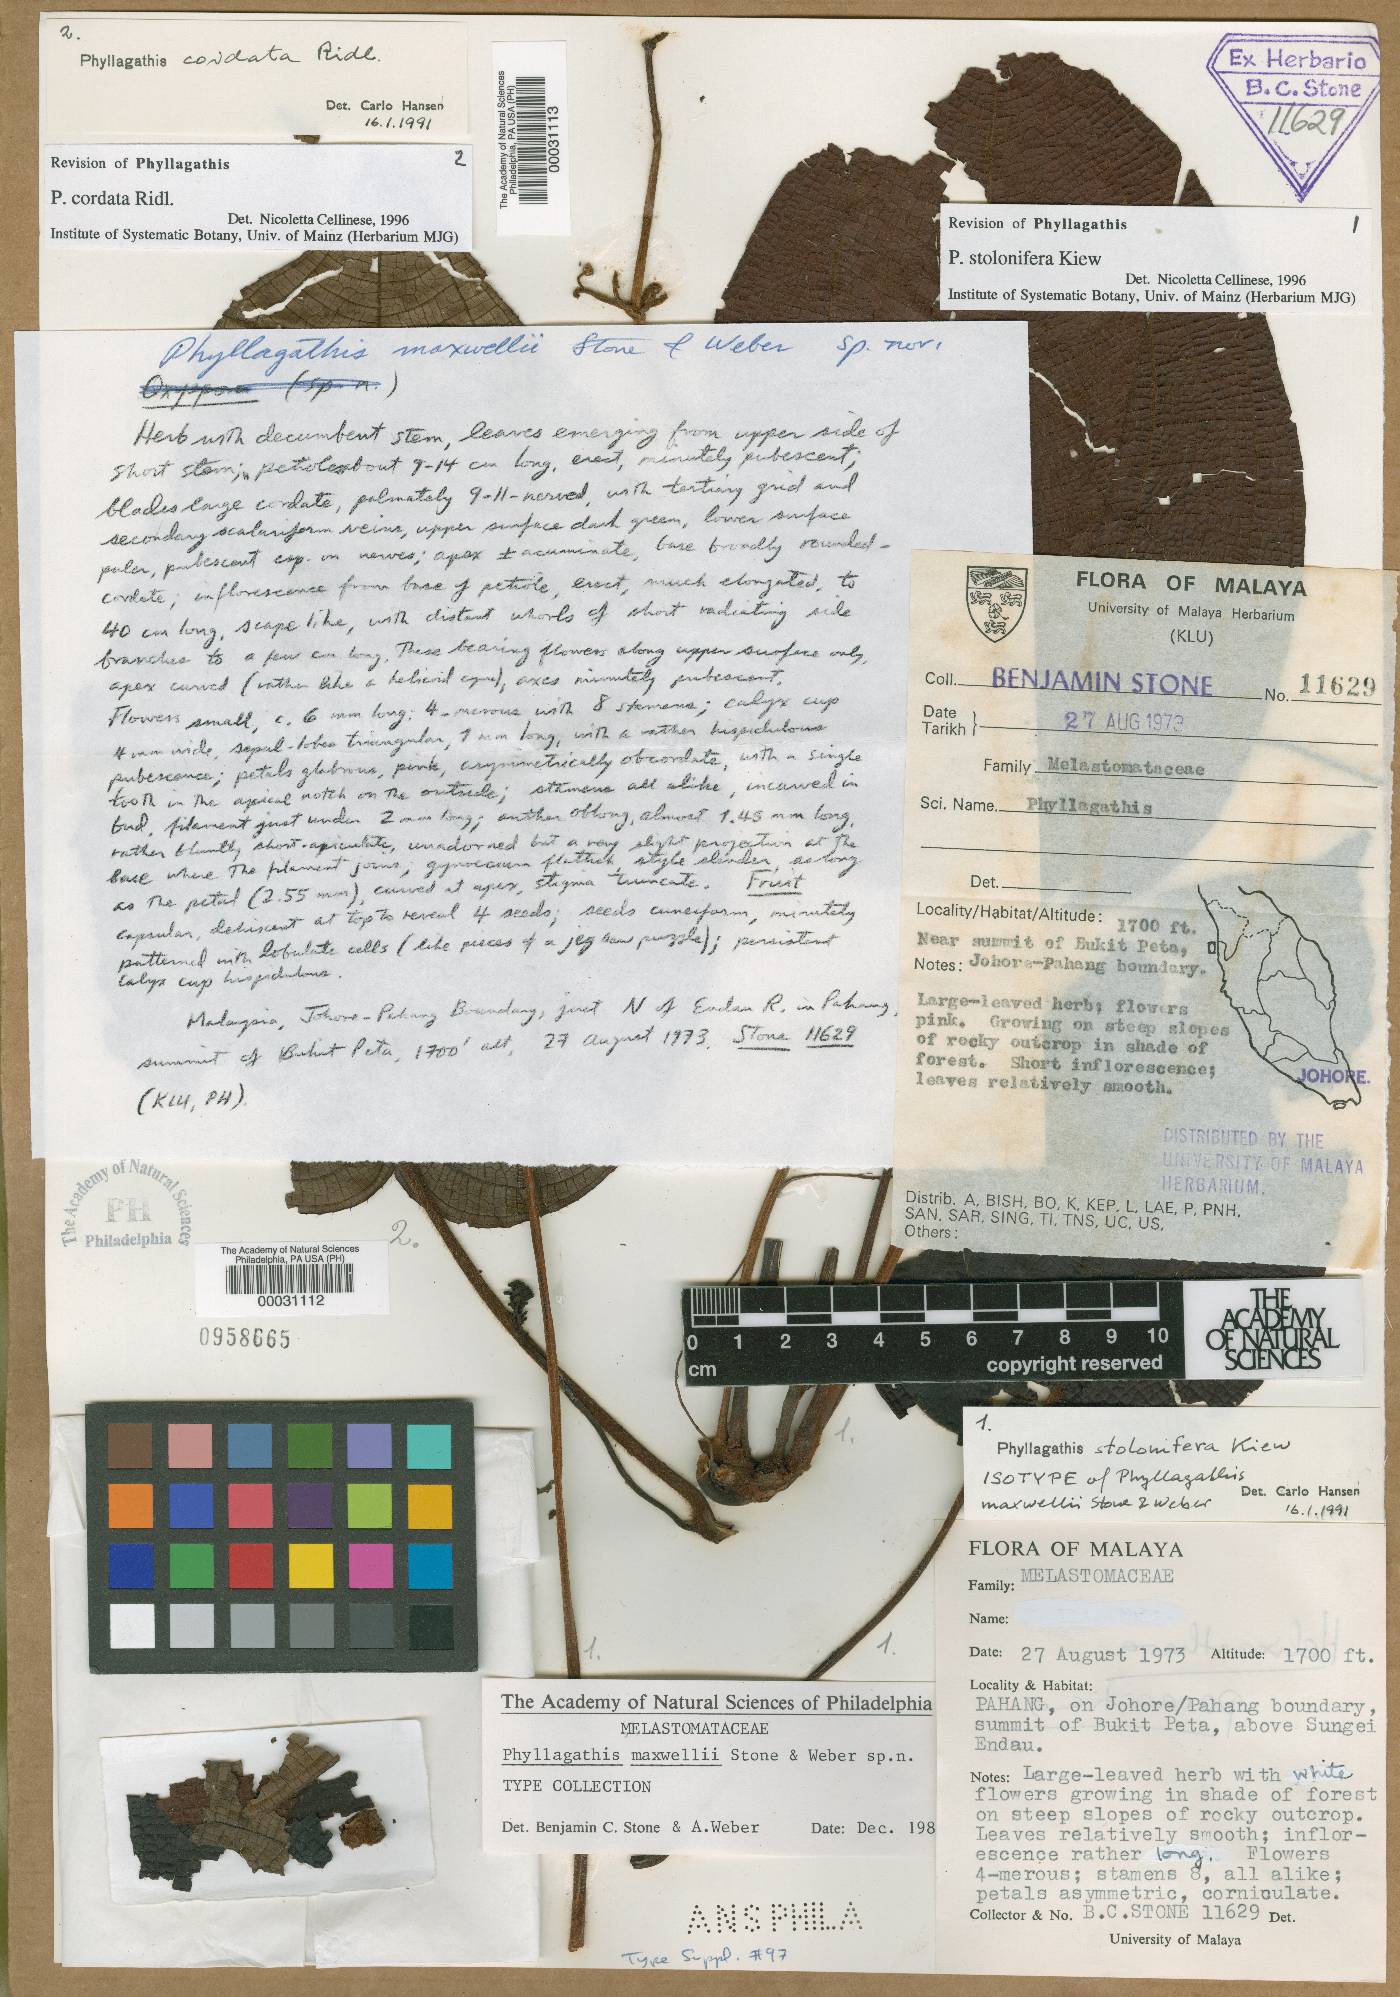 2.
Phyllagathis cordata Ridl.
Det. Carlo Hansen
16.1.1991
Revision of Phyllagathis 2
P. cordata Ridl.
Det. Nicoletta Cellinese, 1996
Institute of Systematic Botany, Univ. of Mainz (Herbarium MJG)
The Academy of Natural Sciences
Philadelphia, PA USA (PH)
00031113
Ex Herbario
B. C. Stone
11629
Revision of Phyllagathis 1
P. stolonifera Kiew
Det. Nicoletta Cellinese, 1996
Institute of Systematic Botany, Univ. of Mainz (Herbarium MJG)
Phyllagathis maxwellii Stone & Weber sp. nov.
Oxyspora (sp. n.)
Herb with decumbent stem, leaves emerging from upper side of
short stem; petiole about 9-14 cm long, erect, minutely pubescent;
blades large cordate, palmately 9-11-nerved, with tertiary grid and
secondary scalariform veins, upper surface dark green, lower surface
paler, pubescent esp. on nerves; apex ± acuminate, base broadly rounded-
cordate; inflorescence from base of petiole, erect, much elongated, to
40 cm long, scape like, with distant whorls of short radiating side
branches to a few cm long. These bearing flowers along upper surface only,
apex curved (rather like a helicoid cyme), axes minutely pubescent.
Flowers small, c. 6 mm long; 4-merous with 8 stamens; calyx cup
4 mm wide, sepal-lobes triangular, 1 mm long, with a rather hispidulous
pubescence; petals glabrous, pink, asymmetrically obcordate, with a single
tooth in the apical notch on the outside; stamens all alike, incurved in
bud, filament just under 2 mm long; anther oblong, almost 1.45 mm long,
rather bluntly short-apiculate, unadorned but a very slight projection at the
base where the filament joins; gynoecium flattish, style slender, as long
as the petal (2.55 mm), curved at apex, stigma truncate. Fruit
capsular, dehiscent at top to reveal 4 seeds; seeds cuneiform, minutely
patterned with lobulate cells (like pieces of a jig saw puzzle); persistent
calyx cup hispidulous.
Malaysia, Johore-Pahang Boundary, just N of Endau R. in Pahang,
summit of Bukit Peta, 1700' alt, 27 August 1973, Stone 11629
(KLU, PH).
FLORA OF MALAYA
University of Malaya Herbarium
(KLU)
Coll. BENJAMIN STONE No. 11629
Date
Tarikh } 27 AUG 1973
Family Melastomataceae
Sci. Name. Phyllagathis
Det.
Locality/Habitat/Altitude: 1700 ft.
Near summit of Bukit Peta,
Notes: Johore-Pahang boundary.
Large-leaved herb; flowers
pink. Growing on steep slopes
of rocky outcrop in shade of
forest. Short inflorescence;
leaves relatively smooth.
JOHORE.
DISTRIBUTED BY THE
UNIVERSITY OF MALAYA
HERBARIUM.
Distrib. A, BISH, BO, K, KEP, L, LAE, P, PNH,
SAN, SAR, SING, TI, TNS, UC, US,
Others:
The Academy of Natural Sciences
PH
Philadelphia
The Academy of Natural Sciences
Philadelphia, PA USA (PH)
00031112
2.
0958665
0 1 2 3 4 5 6 7 8 9 10
cm copyright reserved
THE
ACADEMY
OF NATURAL
SCIENCES
1.
1.
1.
1.
Phyllagathis stolonifera Kiew
ISOTYPE of Phyllagathis
maxwellii Stone & Weber
Det. Carlo Hansen
16.1.1991
FLORA OF MALAYA
Family: MELASTOMACEAE
Name:
Date: 27 August 1973 Altitude: 1700 ft.
Locality & Habitat:
PAHANG, on Johore/Pahang boundary,
summit of Bukit Peta, above Sungei
Endau.
Notes: Large-leaved herb with white
flowers growing in shade of forest
on steep slopes of rocky outcrop.
Leaves relatively smooth; inflor-
escence rather long. Flowers
4-merous; stamens 8, all alike;
petals asymmetric, corniculate.
Collector & No. B.C.STONE 11629 Det.
University of Malaya
The Academy of Natural Sciences of Philadelphia
MELASTOMATACEAE
Phyllagathis maxwellii Stone & Weber sp.n.
TYPE COLLECTION
Det. Benjamin C. Stone & A.Weber Date: Dec. 198
ANS PHILA
Type Suppl. #97